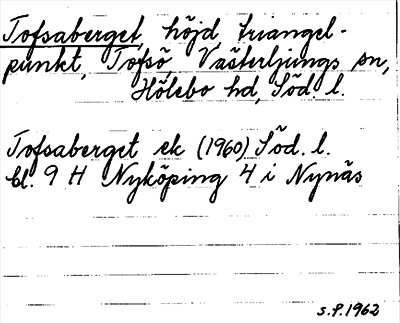 Tofsaberget, höjd, triangel-
punkt, Tofsö Västerljungs sn,
Hölebo hd, Söd. l.
Tofsaberget ek (1960) Söd. l.
bl. 9 H Nyköping 4 i Nynäs
S.P. 1962